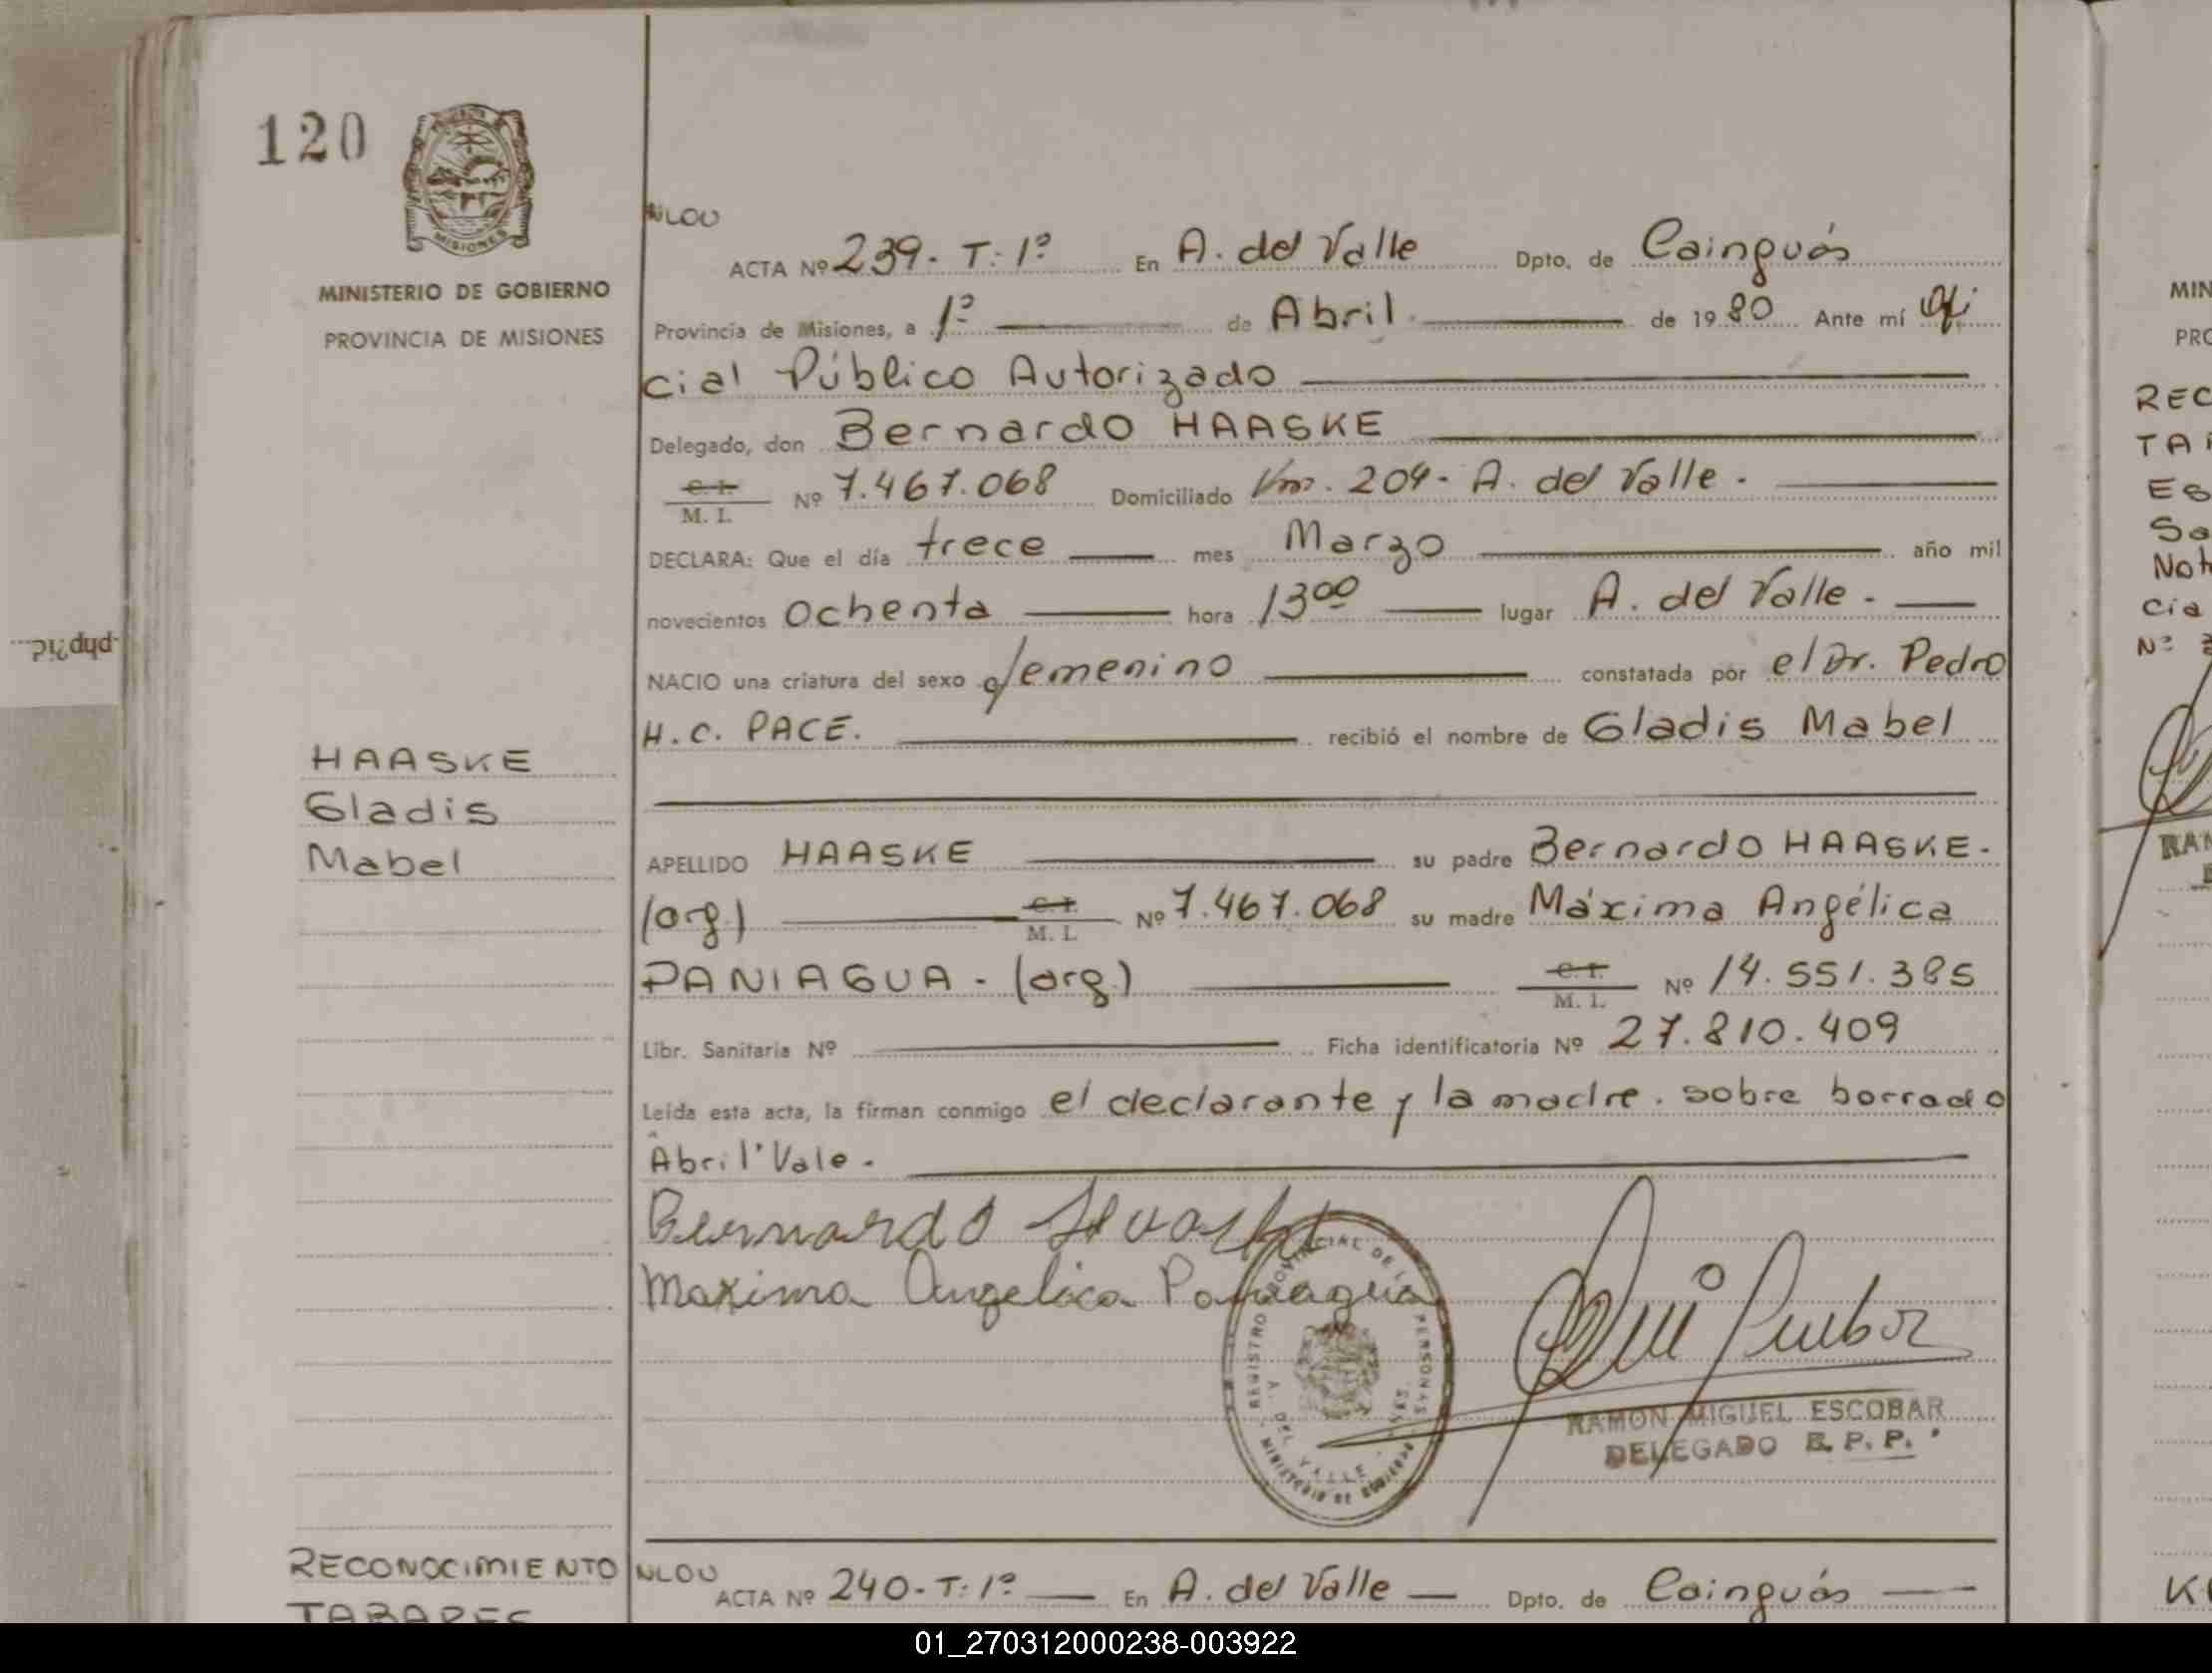 120
MISIONES
MINISTERIO DE GOBIERNO
PROVINCIA DE MISIONES
HAASKE
Gladis
Mabel
NLOU
ACTA Nº 239- T: 1º En A. del Valle Dpto. de Cainguás
Provincia de Misiones, a 1º de Abril de 1980 Ante mí Ofi
cial Público Autorizado
Delegado, don Bernardo HAASKE
C. I.
M. I. Nº 7.467.068 Domiciliado Km. 204- A. del Valle.
DECLARA: Que el día trece mes Marzo año mil
novecientos Ochenta hora 13⁰⁰ lugar A. del Valle.
NACIO una criatura del sexo femenino constatada por el Dr. Pedro
H.C. PACE. recibió el nombre de Gladis Mabel
APELLIDO HAASKE su padre Bernardo HAASKE.
(arg.) C. I. M. I. Nº 7.467.068 su madre Máxima Angélica
PANIAGUA - (arg.) C. I. M. I. Nº 14.551.385
Libr. Sanitaria Nº Ficha identificatoria Nº 27.810.409
Leída esta acta, la firman conmigo el declarante y la madre. sobre borrado
Abril" Vale.
Bernardo Haaske
Maxima Angelica Paniagua
REGISTRO PROVINCIAL DE LAS PERSONAS
A. DEL VALLE - MNES.
MINISTERIO DE GOBIERNO
RAMON MIGUEL ESCOBAR
DELEGADO R. P. P.
RECONOCIMIENTO
TABARES
NLOU
ACTA Nº 240-T: 1º En A. del Valle Dpto. de Cainguás
MIN
PRO
REC
ES
Sa
Not
cia
Nº
RAM
.php?id...
01_270312000238-003922